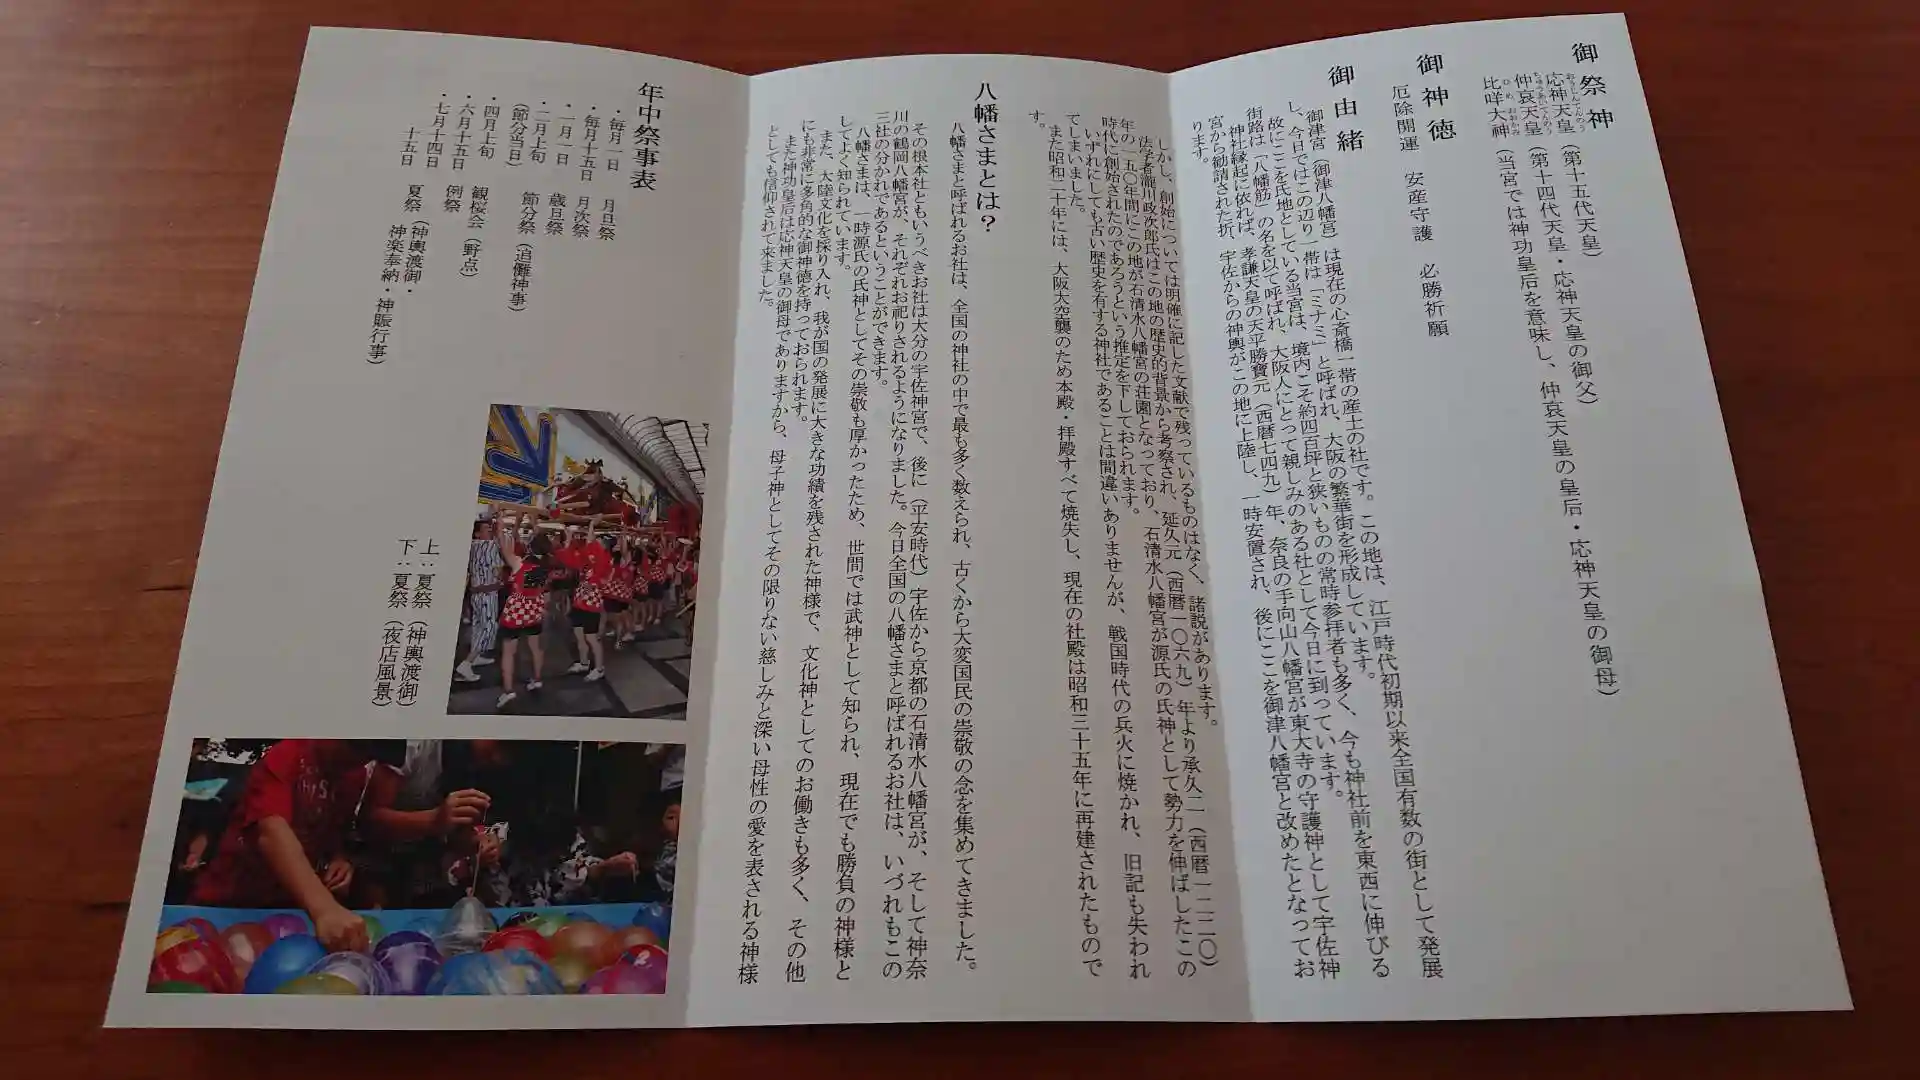 御祭神
応神天皇（第十五代天皇）
おうじんてんのう
仲哀天皇（第十四代天皇・応神天皇の御父）
ちゅうあいてんのう
比咩大神（当宮では神功皇后を意味し、仲哀天皇の皇后・応神天皇の御母）
ひめおおかみ
御神徳
厄除開運　安産守護　必勝祈願
御由緒
御津宮（御津八幡宮）は現在の心斎橋一帯の産土の社です。この地は、江戸時代初期以来全国有数の街として発展
し、今日ではこの辺り一帯は「ミナミ」と呼ばれ、大阪の繁華街を形成しています。
故にここを氏地としている当宮は、境内こそ約四百坪と狭いものの常時参拝者も多く、今も神社前を東西に伸びる
街路は「八幡筋」の名を以て呼ばれ、大阪人にとって親しみのある社として今日に到っています。
神社縁起に依れば、孝謙天皇の天平勝寶元（西暦七四九）年、奈良の手向山八幡宮が東大寺の守護神として宇佐神
宮から勧請された折、宇佐からの神輿がこの地に上陸し、一時安置され、後にここを御津八幡宮と改めたとなってお
ります。
しかし、創始については明確に記した文献で残っているものはなく、諸説があります。
法学者瀧川政次郎氏はこの地の歴史的背景から考察され、延久元（西暦一〇六九）年より承久二（西暦一二二〇）
年の一五〇年間にこの地が石清水八幡宮の荘園となっており、石清水八幡宮が源氏の氏神として勢力を伸ばしたこの
時代に創始されたのであろうという推定を下しておられます。
いずれにしても古い歴史を有する神社であることは間違いありませんが、戦国時代の兵火に焼かれ、旧記も失われ
てしまいました。
また昭和二十年には、大阪大空襲のため本殿・拝殿すべて焼失し、現在の社殿は昭和三十五年に再建されたもので
す。
八幡さまとは？
八幡さまと呼ばれるお社は、全国の神社の中で最も多く数えられ、古くから大変国民の崇敬の念を集めてきました。
その根本社ともいうべきお社は大分の宇佐神宮で、後に（平安時代）宇佐から京都の石清水八幡宮が、そして神奈
川の鶴岡八幡宮が、それぞれお祀りされるようになりました。今日全国の八幡さまと呼ばれるお社は、いづれもこの
三社の分かれであるということができます。
八幡さまは、一時源氏の氏神としてその崇敬も厚かったため、世間では武神として知られ、現在でも勝負の神様と
してよく知られています。
また、大陸文化を採り入れ、我が国の発展に大きな功績を残された神様で、文化神としてのお働きも多く、その他
にも非常に多角的な御神徳を持っておられます。
また神功皇后は応神天皇の御母でありますから、母子神としてその限りない慈しみと深い母性の愛を表される神様
としても信仰されて来ました。
年中祭事表
・毎月一日　月旦祭
・毎月十五日　月次祭
・一月一日　歳旦祭
・二月上旬　節分祭（追儺神事）
（節分当日）
・四月上旬　観桜会（野点）
・六月十五日　例祭
・七月十四日　夏祭（神輿渡御・
十五日　神楽奉納・神賑行事）
上：夏祭（神輿渡御）
下：夏祭（夜店風景）